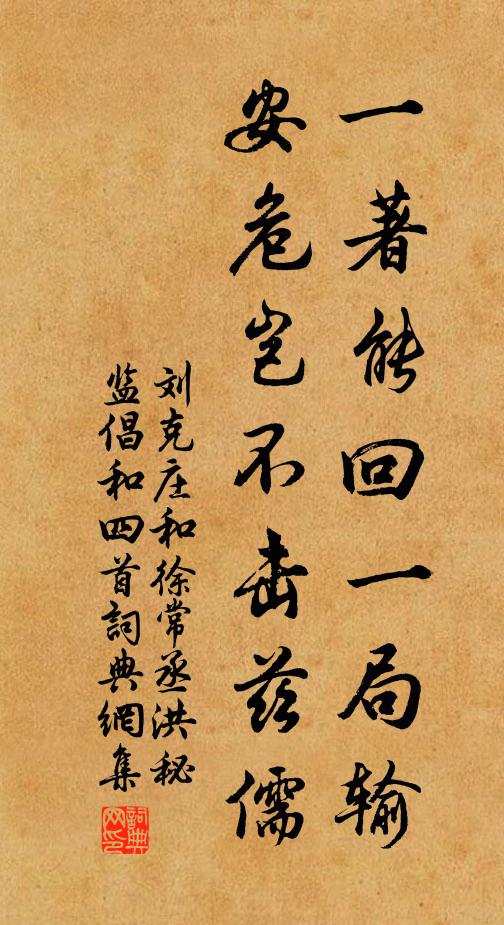 一著能回一局输
安危岂不击兹儒
刘克庄和徐常丞洪秘
监倡和四首詞典網集
詞典
网印